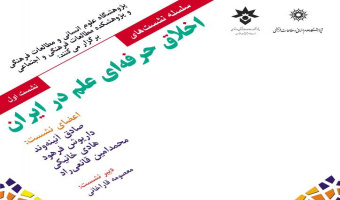 پژوهشگاه علوم انسانی و مطالعات فرهنگی
و پژوهشکده مطالعات فرهنگی و اجتماعی
برگزار می کنند:
سلسله نشست‌های
اخلاق حرفه‌ای علم در ایران
نشست اول
اعضای نشست:
صادق آئینه‌وند
داریوش فرهود
هادی خانیکی
محمدامین قانعی‌راد
دبیر نشست:
معصومه قاراخانی